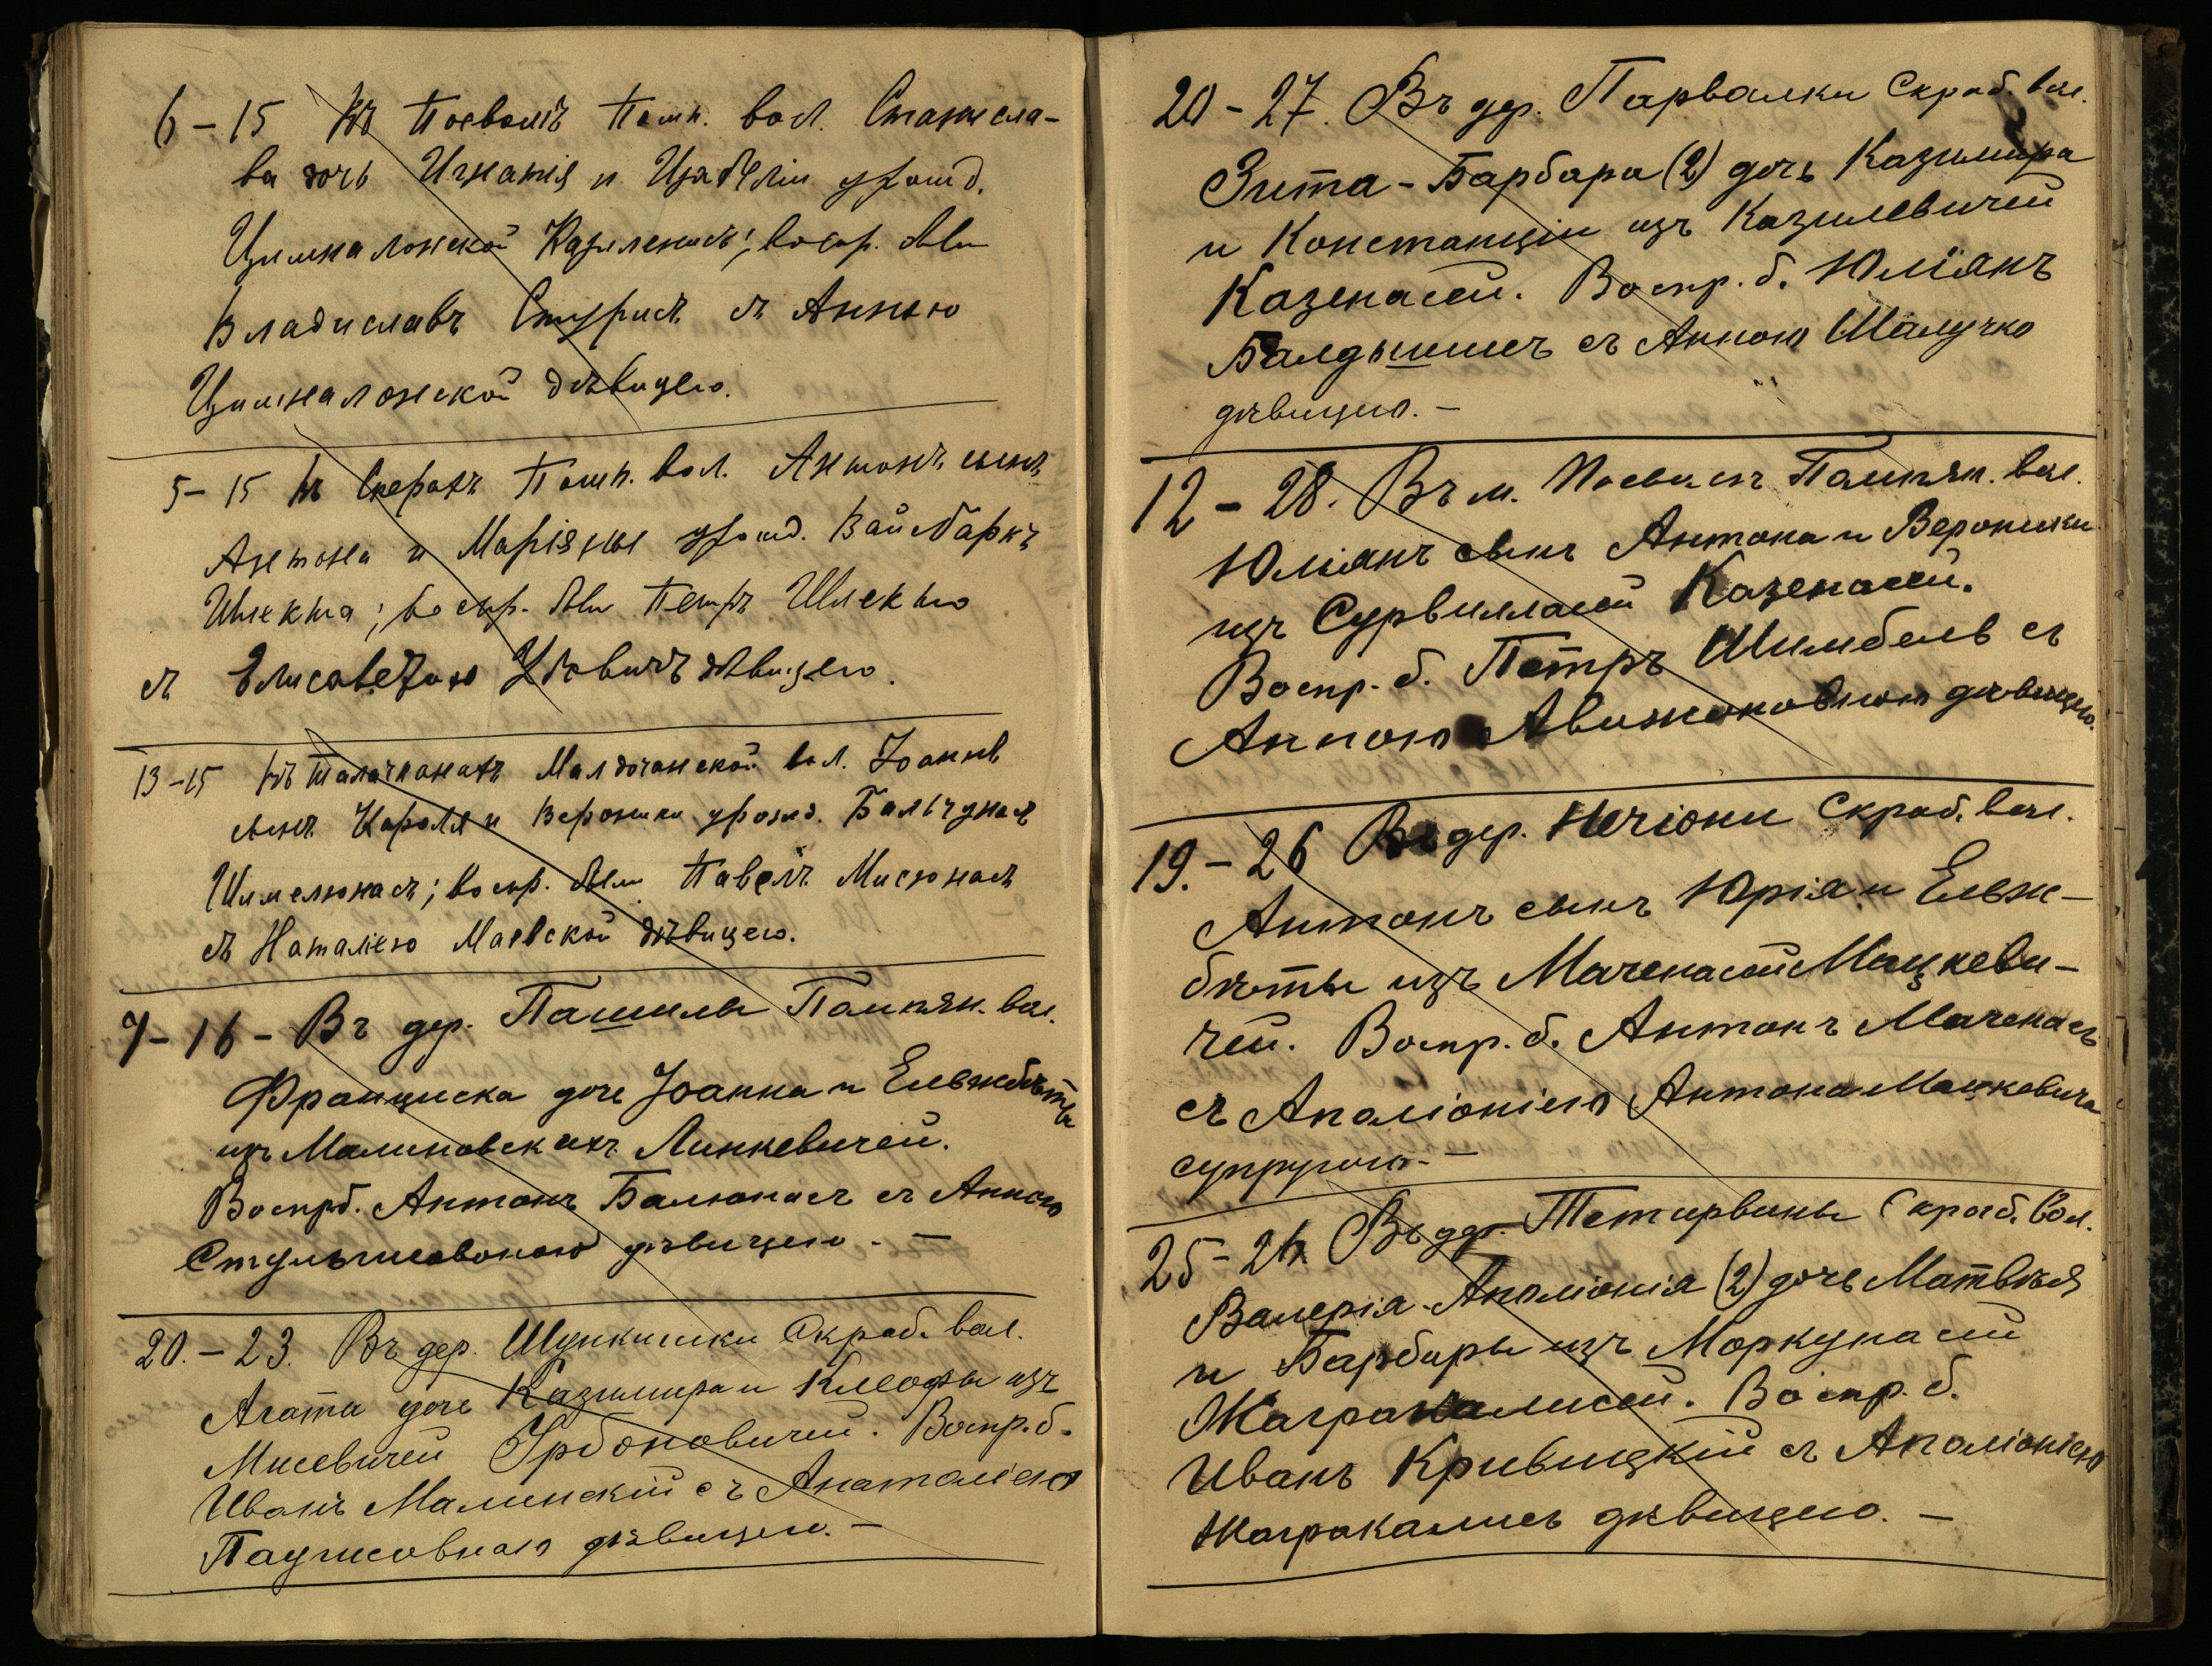 6-15 Въ Поеволѣ Помп. вол. Станисла-
ва дочь Игнатія и Изабеліи урожд.
Цишналонской Казленасъ; воспр. были
Владиславъ Стурисъ съ Анною
Цишналонской дѣвицею.
5-15 въ Скерахъ Помп. вол. Антонъ сынъ
Антона и Маріяны урожд. Войтбаркъ
Шлекта; воспр. были Петръ Шлекто
съ Елисаветою дѣвицею.
13-15 въ Малдочанской вол. Іоаннъ
сынъ Кароля и Вероники урожд. Бальчунасъ
Шимелюнасъ; воспр. были Павелъ Мисюнасъ
съ Наталіею Маевской дѣвицею.
7-16- Въ дер. Пашилы Помпян. вол.
Франциска дочь Іоанна и Ельжбѣты
изъ Малиновскихъ Линкевичей.
Воспр. б. Антонъ Балюнасъ съ Анною
дѣвицею. -
20.-23. Въ дер. Шункишки Скраб. вол.
Агата дочь Казимира и Клеофы изъ
Мисевичей Урбоновичей. Воспр. б.
Иванъ Малинскій съ Анатоліею
дѣвицею. -
20-27. Въ др. Парвалки Скраб. вол.
Зита-Барбара (2) дочь Казимира
и Констанціи изъ Казилевичей
Казенасей. Воспр. б. Юліянъ
Балдышисъ съ Анною Шалучко
дѣвицею. -
12-28. Въ м. Поевасъ Помпян. вол.
Юліянъ сынъ Антона и Вероники
изъ Сурвилласей Казенасей.
Воспр. б. Петръ Шимбель съ
Анною Авижоновною дѣвицею.
19.-26 Въ дер. Нечіоны Скраб. вол.
Антонъ сынъ Юрія и Ельж-
бѣты изъ Маченасей Мацкеви-
чей. Воспр. б. Антонъ Маченасъ
съ Аполіоніею Антона Мацкевича
супругою. -
25-26. Въ др. Тетирвины Скраб. вол.
Валерія-Аполіонія (2) дочь Матвѣя
и Барбары изъ Моркунасей
Жагракалисей. Воспр. б.
Иванъ Кривицкій съ Аполіоніею
Жагракалисъ дѣвицею. -